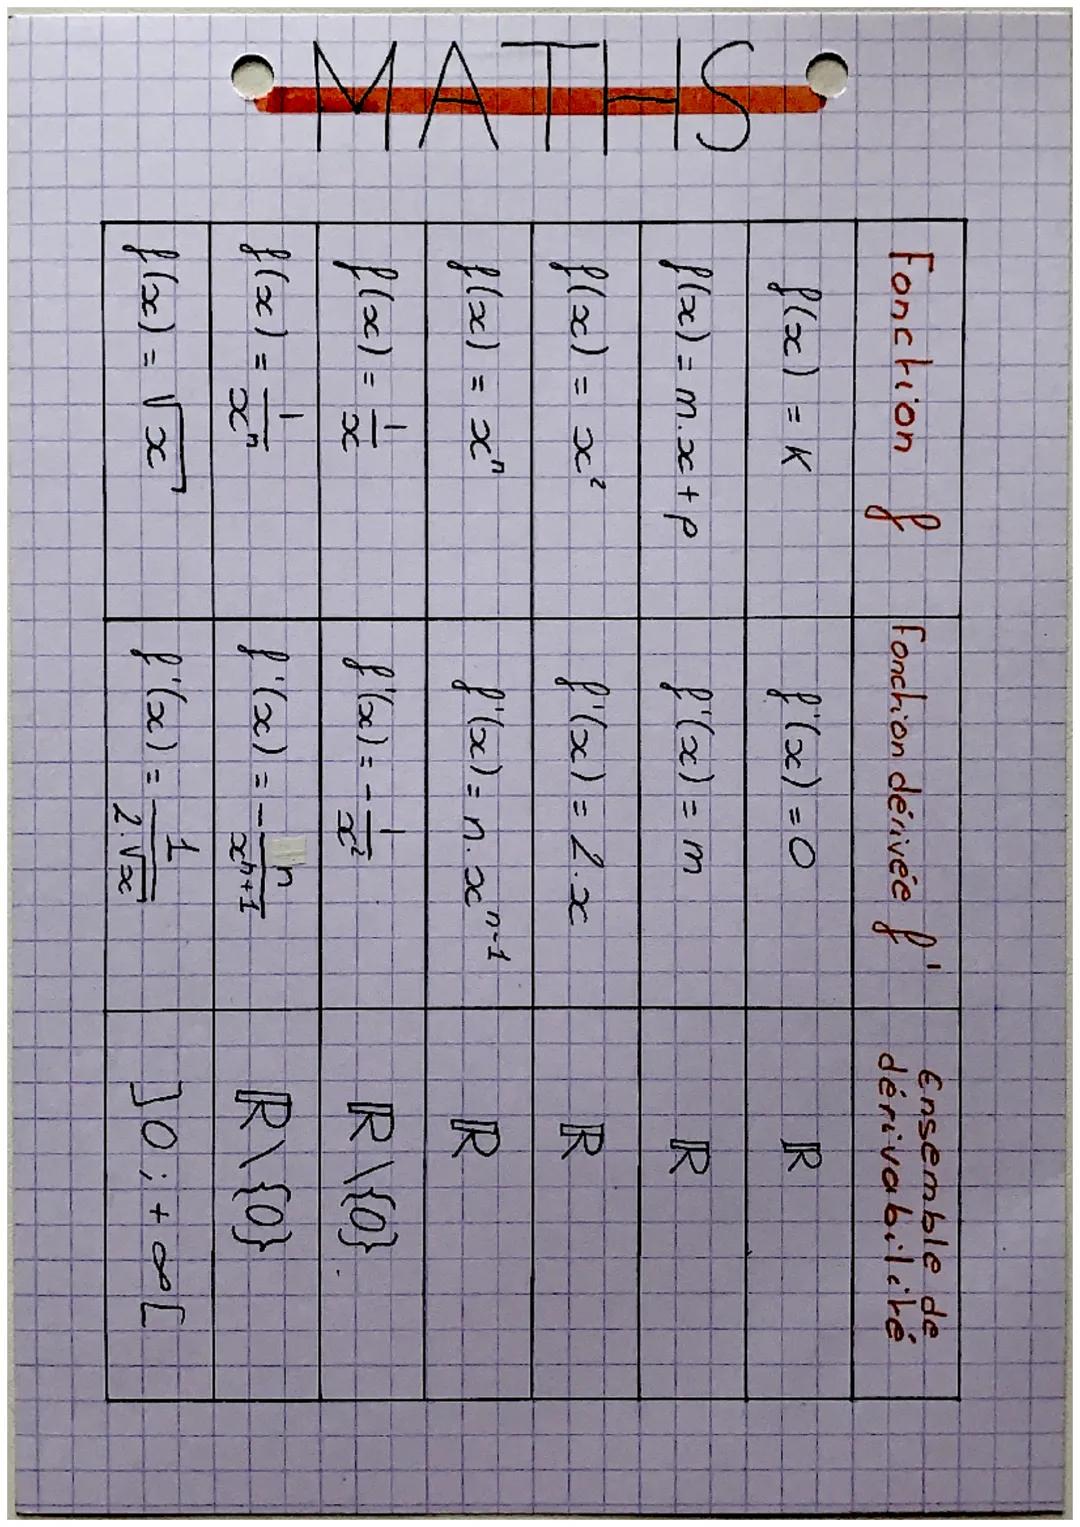 MATHS
Fonction f	Fonction dérivée f'	Ensemble de dérivabilité
f(x) = K	f'(x) = 0	ℝ
f(x) = m.x + p	f'(x) = m	ℝ
f(x) = x²	f'(x) = 2.x	ℝ
f(x) = xⁿ	f'(x) = n.xⁿ⁻¹	ℝ
f(x) = 1/x	f'(x) = -1/x²	ℝ\{0}
f(x) = 1/xⁿ	f'(x) = -n/xⁿ⁺¹	ℝ\{0}
f(x) = √x	f'(x) = 1/(2.√x)	]0 ; +∞[